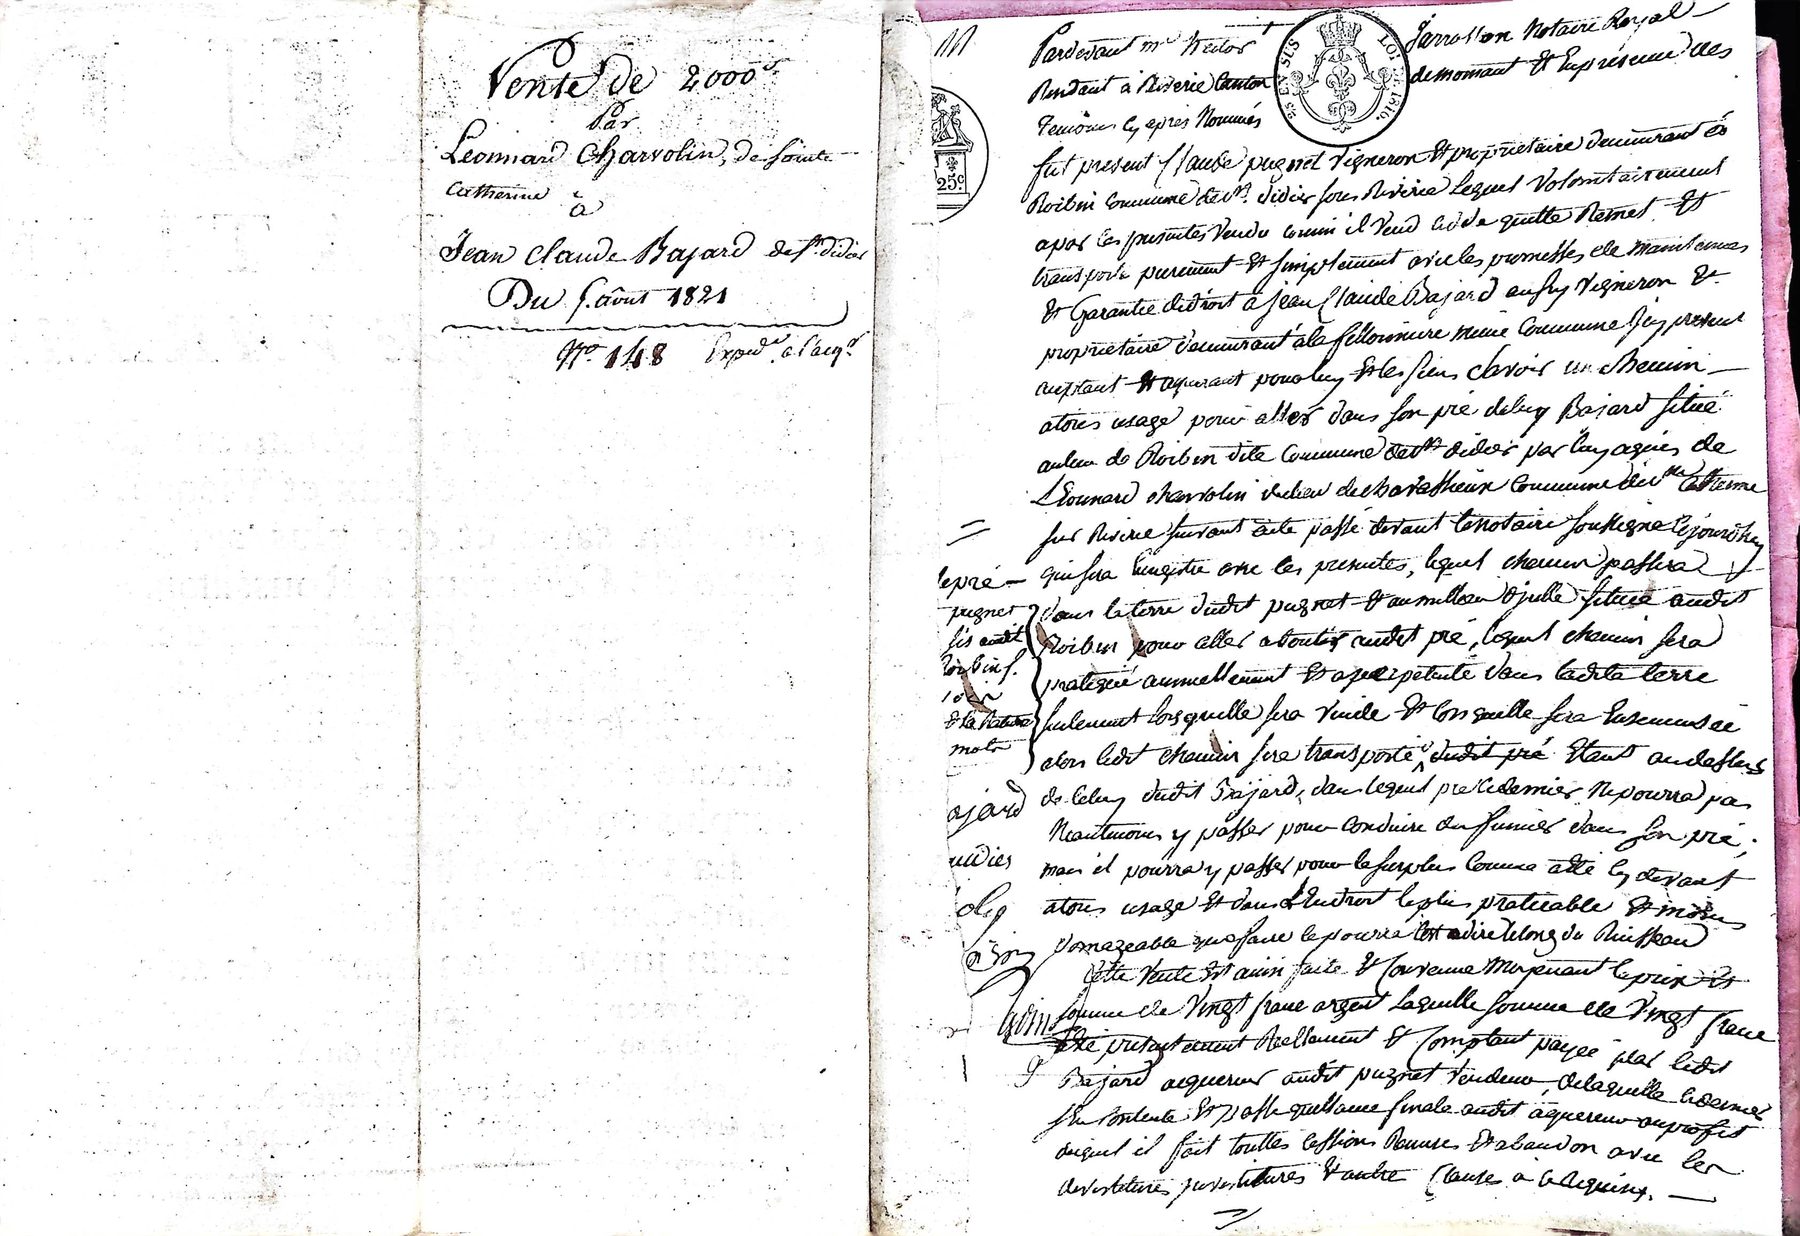 Vente de 2000 f
Par
Léonnard Charvolin, de sainte
Catherine
à
Jean Claude Bajard de st. didier
Du 5. août 1821
No. 148 Expédon. a l'acqr.
Pardevant me hector Jarrosson Notaire Royal
Rendant à Riverie Canton demornant Et Enpresence des
Temoins cy après Nommés
25 c.
LOI 1816
fut present Claude pugnet Vigneron Et proprietaire demeurant à
Roibin Commune de st. didier sous Riverie Lequel Volontairement
a par les presentes Vendu comm il Vend cede quitte Remet Et
transporte purement Et simplement avec les promesses de maintenue
Et Garantie dedroit à jean Claude Bajard aussy Vigneron Et
proprietaire demeurant à la fillonniere meme Commune Icy present
acceptant Et aquerant pour luy Et les siens Savoir un chemin
atous usage pour aller dans son pré deluy Bajard situé
aulieu de Roibin dite Commune de st. didier par luy aquis de
Léonnard charvolin dulieu de chavassieux Commune de ste. Catherine
sur Riverie suivant acte passé devant le notaire soussigné cejourdhuy
qui sera Enregistré avec les presentes, lequel chemin passera
dans la terre dudit pugnet Et au millieu d'jcelle située audit
Roibin pour aller aboutir audit pré, lequel chemin sera
pratiqué annuellement Et aperpetuité dans ladite terre
seulement lorsquelle sera Vuide Et lorsquelle sera Ensemensée
alors ledit chemin sera transporté dudit pré Etant audessus
de Celuy dudit Bajard, dans lequel pré Cedernier Nepourra pas
Neantmoins y passer pour conduire du fumier dans son pré;
mais il pourra y passer pour le surplus Comme a été cy devant
atous usage Et dans L'Endroit leplus praticable Et moins
domageable que faire le pourra C'est adire lelong du Ruisseau
Cette Vente Est ainsi faite Et Convenue Moyenant leprix Et
somme de Vingt franc argent Laquelle somme de Vingt franc
a Eté presentement Reellement Et Comptant payée par ledit
Bajard acquereur audit pugnet Vendeur, delaquelle cedernier
sen Contente Et passe quittance finale audit aquereur auprofit
duquel il fait touttes Cessions Remises Et abandon avec les
devestitures jnvestitures Et autre Clauses à ce Requises.
le pré
pugnet
sis audit
Roibin f.
Et la Rature
mots
ajard